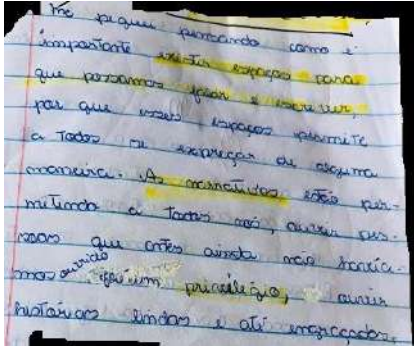 me peguei pensando como é
importante existir espaços para
que possamos falar e escrever,
por que esses espaços permite
a todos se expreçar de alguma
maneira. As narrativas estão per-
mitindo a todos nós, ouvir pes-
soas que antes ainda não havia-
mos ouvido um privilégio, ouvir
histórias lindas e até engraçadas,